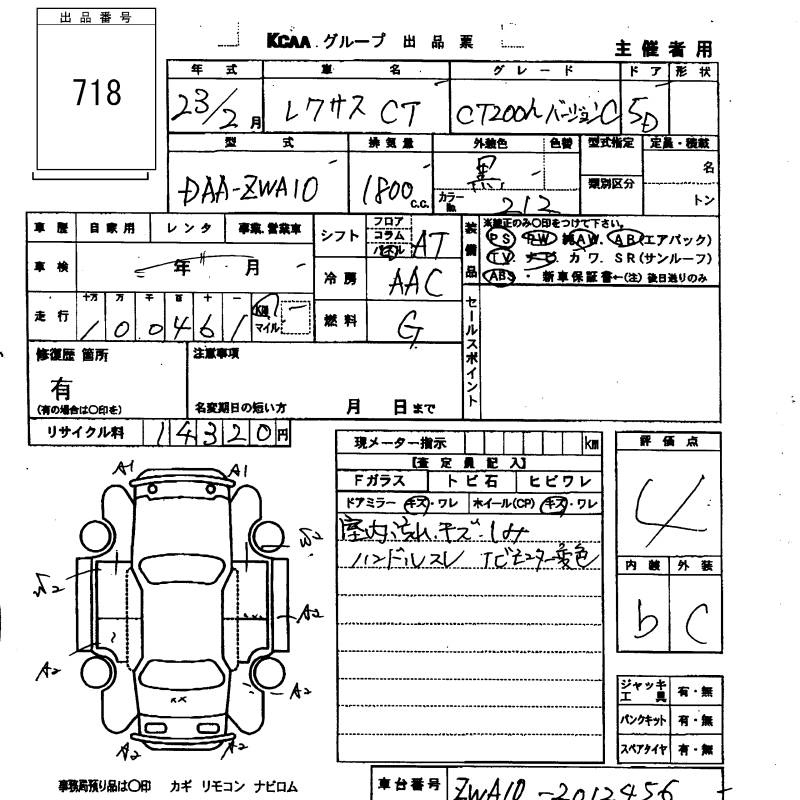 出品番号
718
KCAA グループ 出品票
主催者用
年式 車名 グレード ドア 形状
23/2月 レクサス CT CT200h バージョンC 5D
型式 排気量 外装色 色替 型式指定 定員・積載
DAA-ZWA10 1800c.c. 黒 名
類別区分
カラーNo. 212 トン
車歴 自家用 レンタ 事業.営業車
シフト フロア コラム パネル AT
装備品 ※純正のみ〇印をつけて下さい。
PS PW 純AW. AB(エアバック)
TV. ナビ カワ. SR(サンルーフ)
ABS ・ 新車保証書←(注) 後日送りのみ
車検 年 月
冷房 AAC
走行 十万 万 千 百 十 一
100461 Km マイル
燃料 G
セールスポイント
修復歴 箇所
有
(有の場合は〇印を)
注意事項
名変期日の短い方 月 日まで
リサイクル料 14320円
現メーター指示 km
【査定員記入】
Fガラス トビ石 ヒビワレ
ドアミラー キズ・ワレ ホイール(CP) キズ・ワレ
室内汚れ.キズ.シミ
ハンドルスレ TVモニター変色
評価点
4
内装 外装
b C
A1 A1
W2
W2
A2
A2 A2
XX
A2 A2
ジャッキ工具 有・無
パンクキット 有・無
スペアタイヤ 有・無
事務局預り品は〇印 カギ リモコン ナビロム
車台番号 ZWA10-2012456